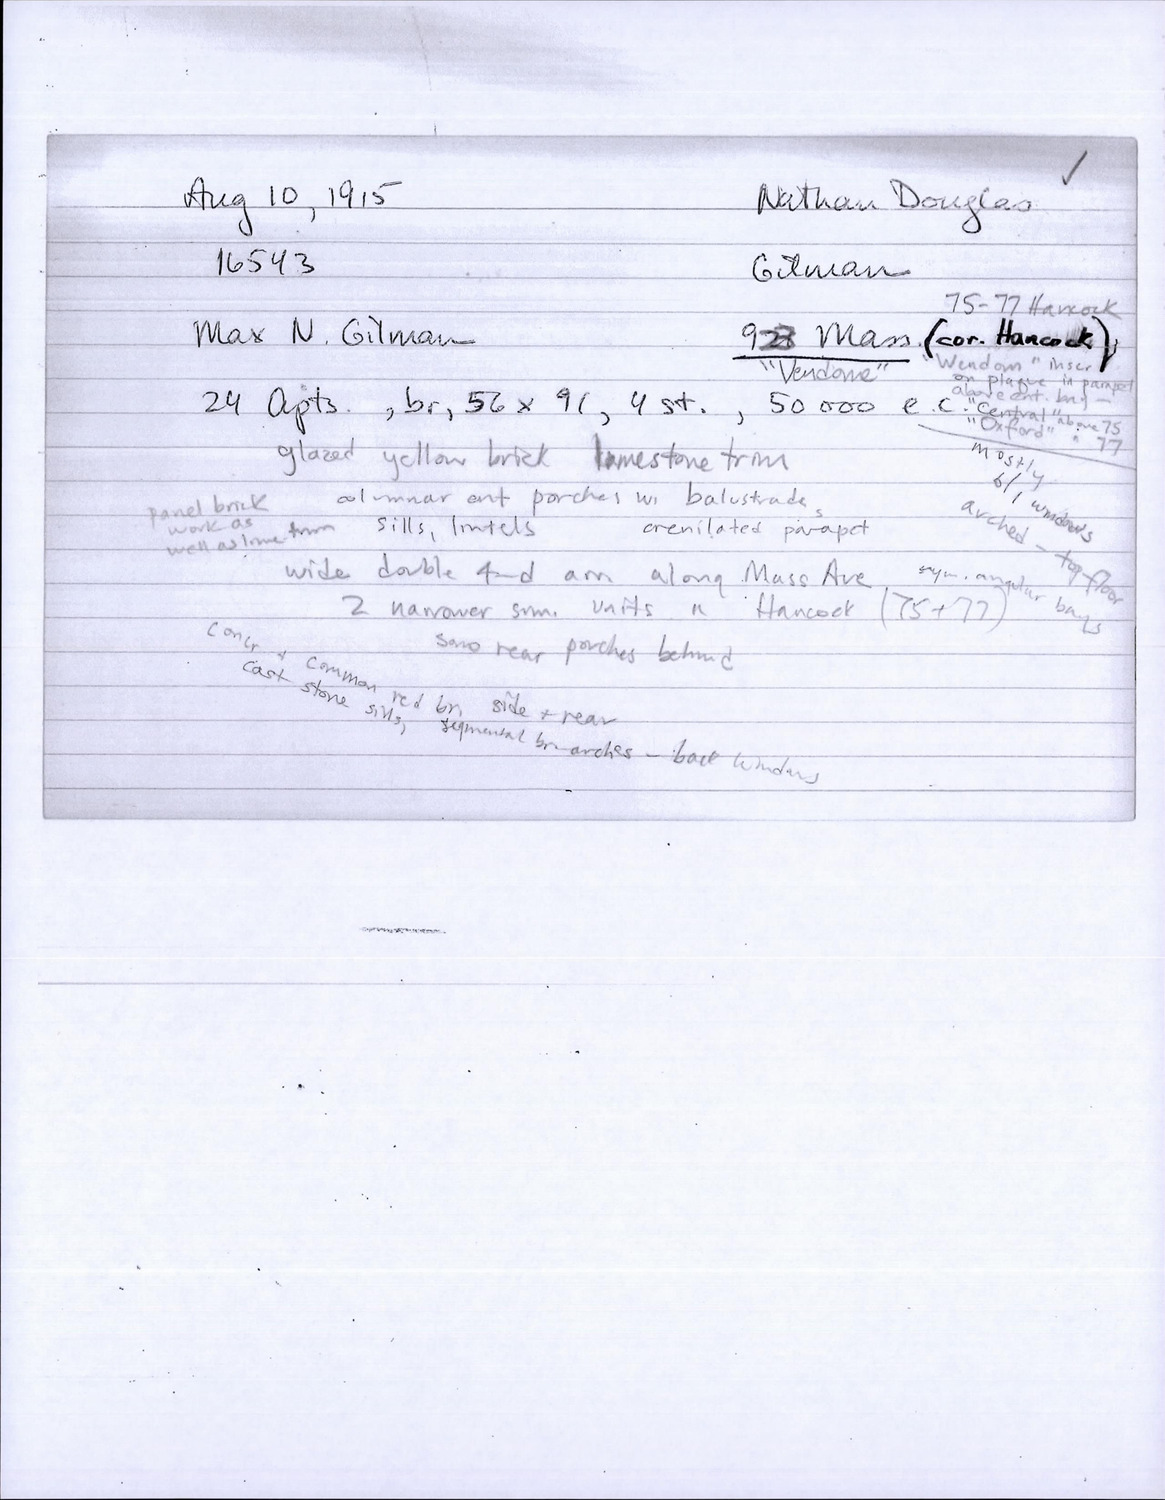 ✓
Aug 10, 1915 Nathan Douglas
16543 Gilman
75-77 Hancock
Max N. Gilman Mass. (cor. Hancock),
"Vendome"
"Wendom" inscr
on plaque in parapet
above ent. bay -
24 Apts. , br, 56 x 91, 4 st. , 50 000 e.c.
"Central" above 75
"Oxford" " 77
glazed yellow brick limestone trim
mostly
6/1 windows
arched - top floor
columnar ent porches w. balustrades
panel brick
work as
well as lime trim
sills, lintels crenilated parapet
wide double along Mass Ave
sym. angular bays
2 narrower sim. units " Hancock (75+77)
rear porches behind
concr + common red br. side + rear
cast stone sills, segmental br arches - back windows